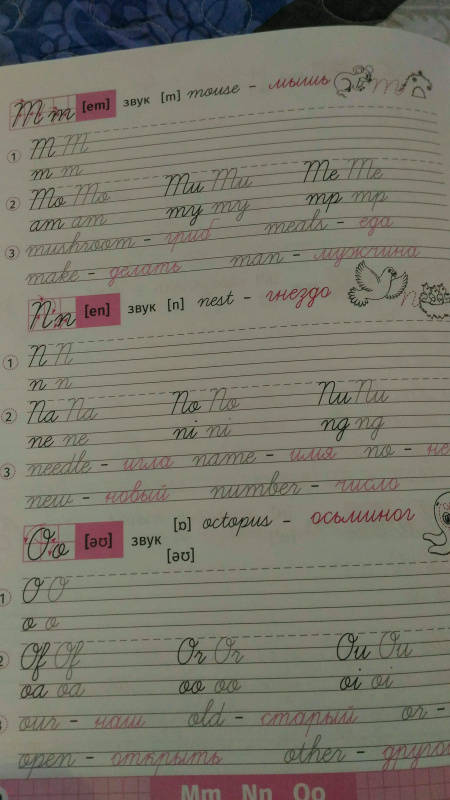 M m [em] звук [m] mouse - мышь m
1 M M
m m
2 Mo Mo Mu Mu Me Me
am am my my mp mp
3 mushroom - гриб meals - еда
make - делать man - мужчина
N n [en] звук [n] nest - гнездо n
1 N N
n n
2 Na Na No No Nu Nu
ne ne ni ni ng ng
3 needle - игла name - имя no - не
new - новый number - число
O o [əʊ] звук [ɒ] octopus - осьминог
[əʊ]
1 O O
o o
2 Of Of Or Or Ou Ou
oa oa oo oo oi oi
3 our - наш old - старый or -
open - открыть other - друго
Mm Nn Oo